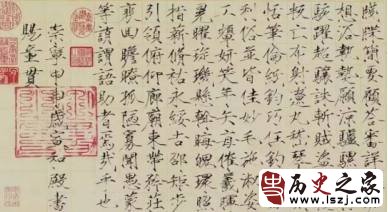 牋牒簡要顧答審詳
骸垢想浴執熱願涼驢騾
犢特駭躍超驤誅斬賊盜
捕獲叛亡布射遼丸嵇琴阮嘯
恬筆倫紙鈞巧任釣釋
紛利俗並皆佳妙毛施淑姿
工顰妍笑年矢每催曦
暉朗曜璇璣懸斡晦魄環照
指薪脩祜永綏吉劭矩步
引領俯仰廊廟束帶矜莊
徘徊瞻眺孤陋寡聞愚蒙
等誚謂語助者焉哉乎也
崇寧甲申歲宣和殿書
賜童貫
历史之家